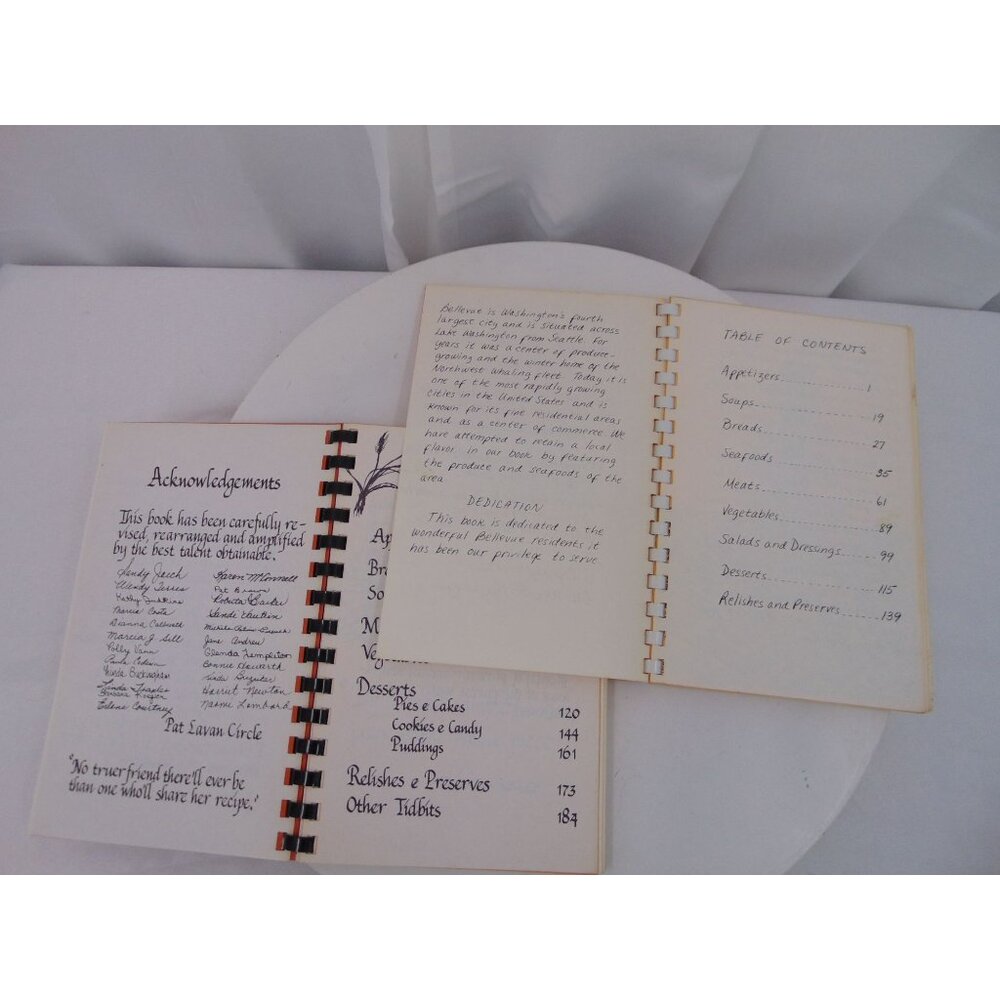 Acknowledgements
This book has been carefully re-
vised, rearranged and amplified
by the best talent obtainable.
Sandy Karen McConnell
Wendy Pat Brown
Kathy Roberta
Marie
Dianna Caldwell
Marcia J. Sill Jane Andrew
Polly Vann Glenda Templeton
Bonnie Howarth
Linda
Linda Harriet Newton
Edena Courtney Naomi Lombard
Pat Lavan Circle
"No truer friend there'll ever be
than one who'll share her recipe."
Ap
Br
So
M
Veg
Desserts
Pies e Cakes 120
Cookies e Candy 144
Puddings 161
Relishes e Preserves 173
Other Tidbits 184
Bellevue is Washington's fourth
largest city and is situated across
Lake Washington from Seattle. For
years it was a center of produce-
growing and the winter home of the
Northwest whaling fleet. Today it is
one of the most rapidly growing
cities in the United States and is
known for its fine residential areas
and as a center of commerce. We
have attempted to retain a local
flavor in our book by featuring
the produce and seafoods of the
area
DEDICATION
This book is dedicated to the
wonderful Bellevue residents it
has been our privilege to serve
TABLE OF CONTENTS
Appetizers 1
Soups 19
Breads 27
Seafoods 35
Meats 61
Vegetables 89
Salads and Dressings 99
Desserts 115
Relishes and Preserves 139